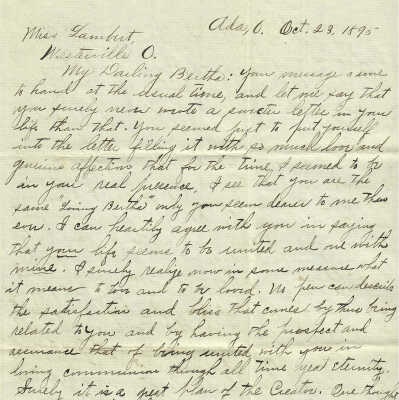 Ada, O. Oct. 23, 1895
Miss Lambert,
Westerville O.
My Darling Bertha: Your message came
to hand at the usual time, and let me say that
you surely never wrote a sweeter letter in your
life than that. You seemed just to put yourself
into the letter filling it with so much love and
genuine affection that for the time, I seemed to be
in your real presence, I see that you are the
same "loving Bertha" only you seem dearer to me than
ever. I can heartily agree with you in saying
that your life seems to be united and one with
mine. I surely realize now in some measure what
it means to love and to be loved. No pen can describe
the satisfaction and bliss that comes by thus being
related to you and by having the prospect and
assurance that of being united with you in
loving communion though all time yea eternity.
Surely it is a great plan of the Creator. One though